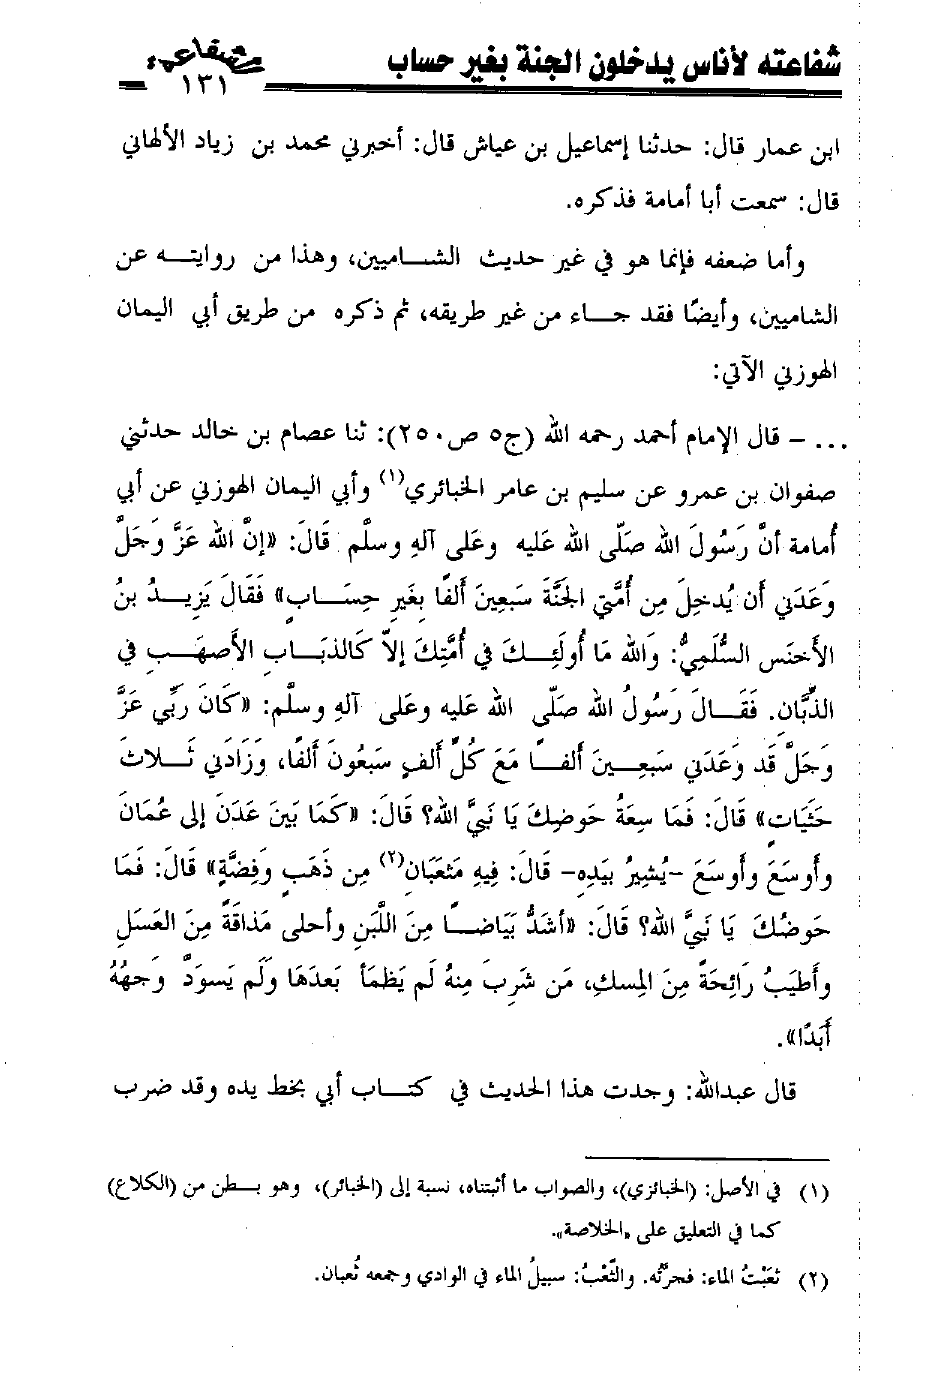 شفاعته لأناس يدخلون الجنة بغير حساب
١٣١
ابن عمار قال: حدثنا إسماعيل بن عياش قال: أخبرني محمد بن زياد الألهاني
قال: سمعت أبا أمامة فذكره.
وأما ضعفه فإنما هو في غير حديث الشاميين، وهذا من روايته عن
الشاميين، وأيضًا فقد جاء من غير طريقه، ثم ذكره من طريق أبي اليمان
الهوزني الآتي:
... – قال الإمام أحمد رحمه الله (ج٥ ص٢٥٠): ثنا عصام بن خالد حدثني
صفوان بن عمرو عن سليم بن عامر الخبائري(١) وأبي اليمان الهوزني عن أبي
أُمامة أنَّ رَسُولَ الله صَلّى الله عَليه وعَلى آلهِ وسلَّم قَالَ: «إنَّ الله عَزَّ وَجَلَّ
وَعَدَني أَن يُدخِلَ مِن أُمَّتي الجَنَّةَ سَبعِينَ أَلفًا بِغَيرِ حِسَابٍ» فَقَالَ يَزِيدُ بنُ
الأَخنَسِ السُّلَمِيُّ: وَالله مَا أُولَئِكَ في أُمَّتِكَ إلاّ كَالذبَابِ الأَصهَبِ في
الذِّبَّان. فَقَالَ رَسُولُ الله صَلّى الله عَليه وعَلى آلهِ وسلَّم: «كَانَ رَبِّي عَزَّ
وَجَلَّ قَد وَعَدَني سَبعِينَ أَلفًا مَعَ كُلِّ أَلفٍ سَبعُونَ أَلفًا، وَزَادَني ثَلاثَ
حَثَيَاتٍ» قَالَ: فَمَا سِعَةُ حَوضِكَ يَا نَبيَّ الله؟ قَالَ: «كَمَا بَينَ عَدَنَ إلى عُمَانَ
وأَوسَعَ وأَوسَعَ –يُشِيرُ بيَدِهِ– قَالَ: فِيهِ مَثعَبَانِ(٢) مِن ذَهَبٍ وَفِضَّةٍ» قَالَ: فَمَا
حَوضُكَ يَا نَبيَّ الله؟ قَالَ: «أَشَدُّ بَيَاضًا مِنَ اللَّبَنِ وأَحلى مَذَاقَةً مِنَ العَسَلِ
وأَطيَبُ رَائِحَةً مِنَ المِسكِ، مَن شَرِبَ مِنهُ لَم يَظمَأ بَعدَهَا وَلَم يَسوَدَّ وَجهُهُ
أَبَدًا».
قال عبدالله: وجدت هذا الحديث في كتاب أبي بخط يده وقد ضرب
(١) في الأصل: (الخبائزي)، والصواب ما أثبتناه، نسبة إلى (الخبائر)، وهو بطن من (الكلاع)
كما في التعليق على «الخلاصة».
(٢) ثعَبْتُ الماء: فجرَّتُه. والثَّعْبُ: سبيلُ الماء في الوادي وجمعه ثُعبان.